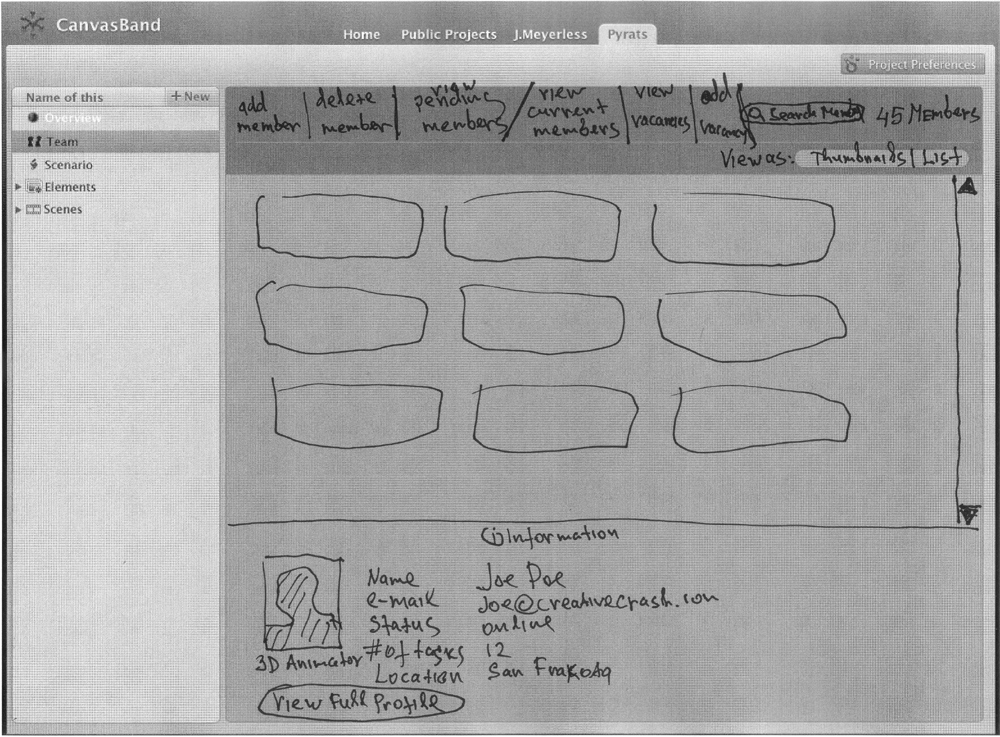 CanvasBand
Home Public Projects J.Meyerless Pyrats
Project Preferences
Name of this + New
Overview
Team
Scenario
Elements
Scenes
add member | delete member | view pending members / view current members | view vacancies | add vacancy
Search Memb
45 Members
View as: Thumbnails | List
(i) Information
Name Joe Doe
e-mail Joe@creativecrash.com
Status online
# of tasks 12
Location San
3D Animator
View Full Profile